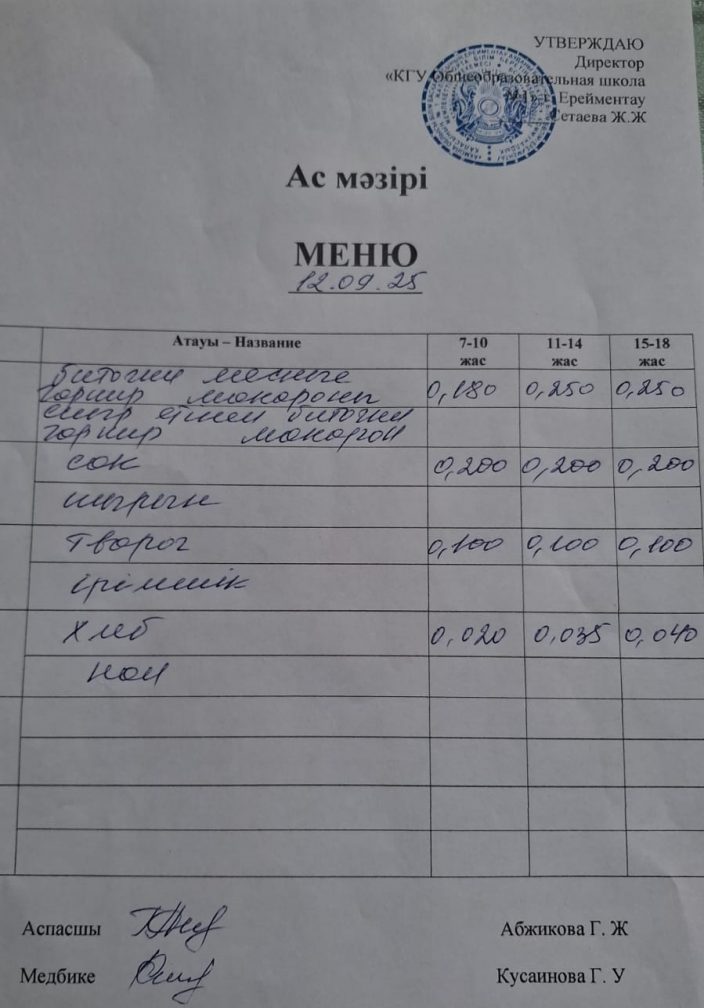 УТВЕРЖДАЮ
Директор
«КГУ Общеобразовательная школа
№1» г. Ерейментау
Сетаева Ж.Ж
Ас мәзірі
МЕНЮ
12.09.25
Атауы – Название 7-10 жас 11-14 жас 15-18 жас
биточки мясные
гарнир макароны 0,180 0,250 0,250
сиыр етінен биточки
гарнир макарон
сок 0,200 0,200 0,200
шырын
творог 0,100 0,100 0,100
ірімшік
хлеб 0,020 0,035 0,040
нан
Аспасшы Абжикова Г. Ж
Медбике Кусаинова Г. У